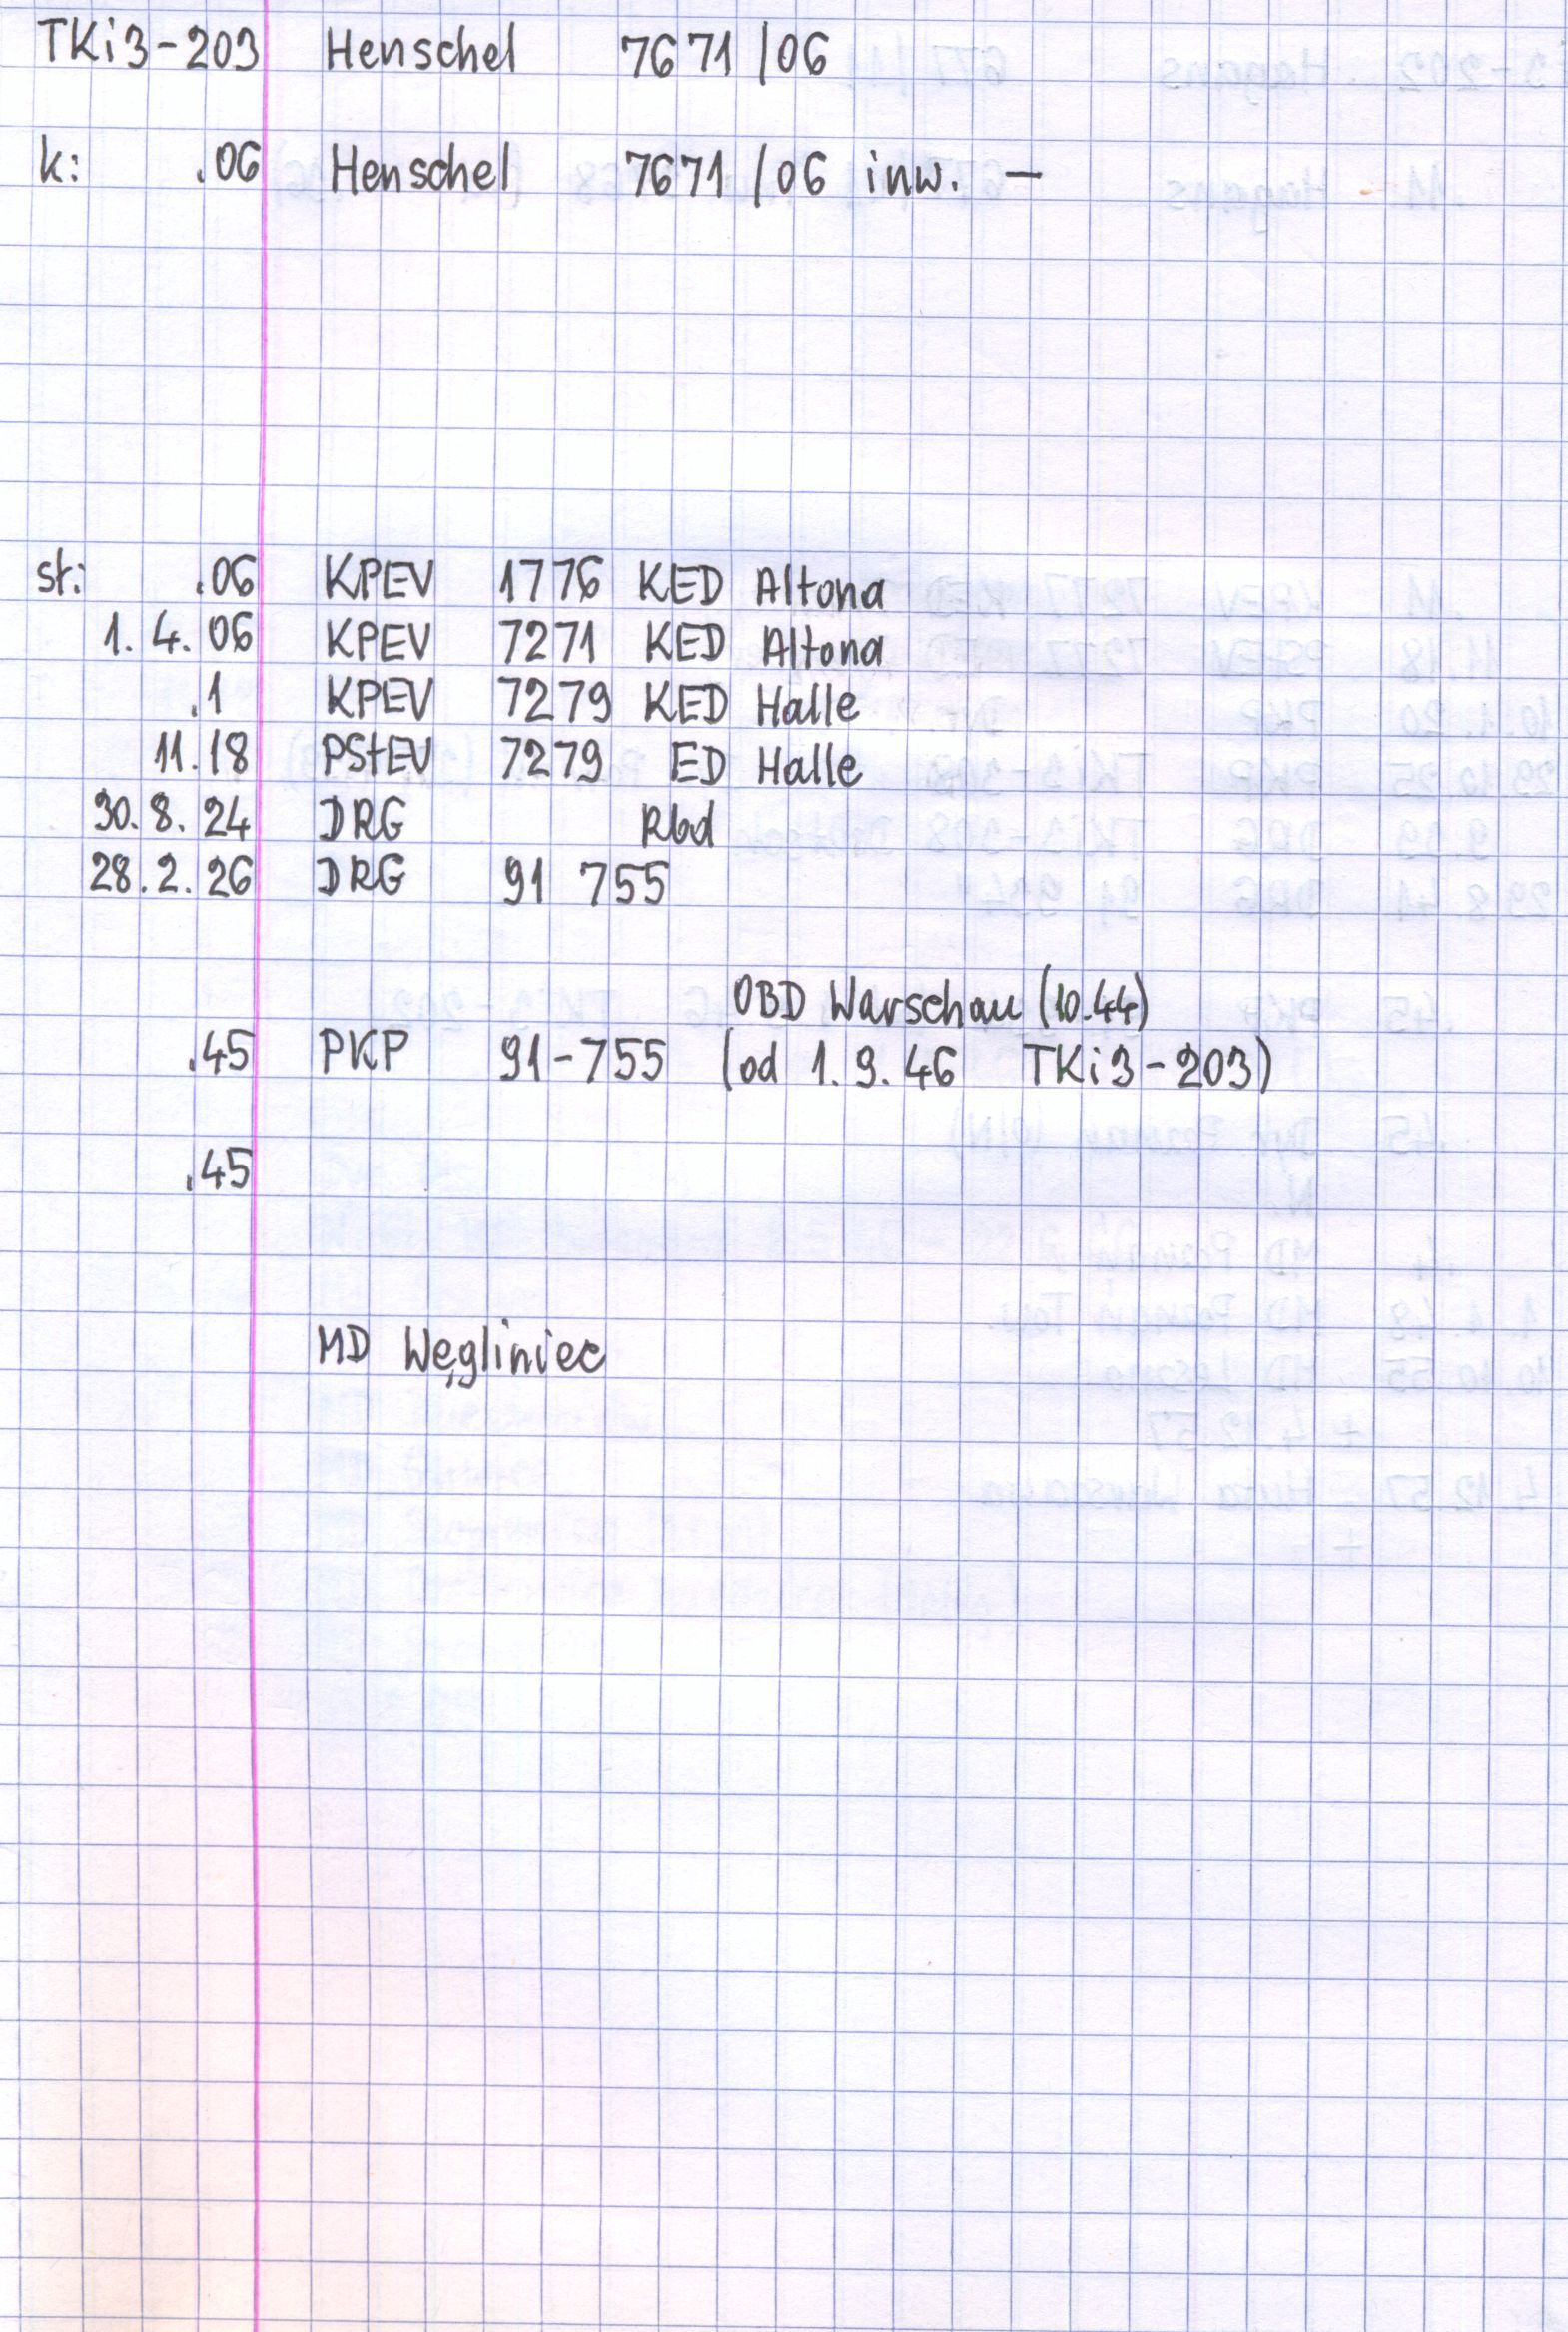 TKi3-203 Henschel 7671/06
k: .06 Henschel 7671/06 inw. —
st: .06 KPEV 1776 KED Altona
1.4.06 KPEV 7271 KED Altona
.1 KPEV 7279 KED Halle
11.18 PStEV 7279 ED Halle
30.8.24 DRG Rbd
28.2.26 DRG 91 755
OBD Warschau (10.44)
.45 PKP 91-755 (od 1.9.46 TKi3-203)
.45
MD Węgliniec